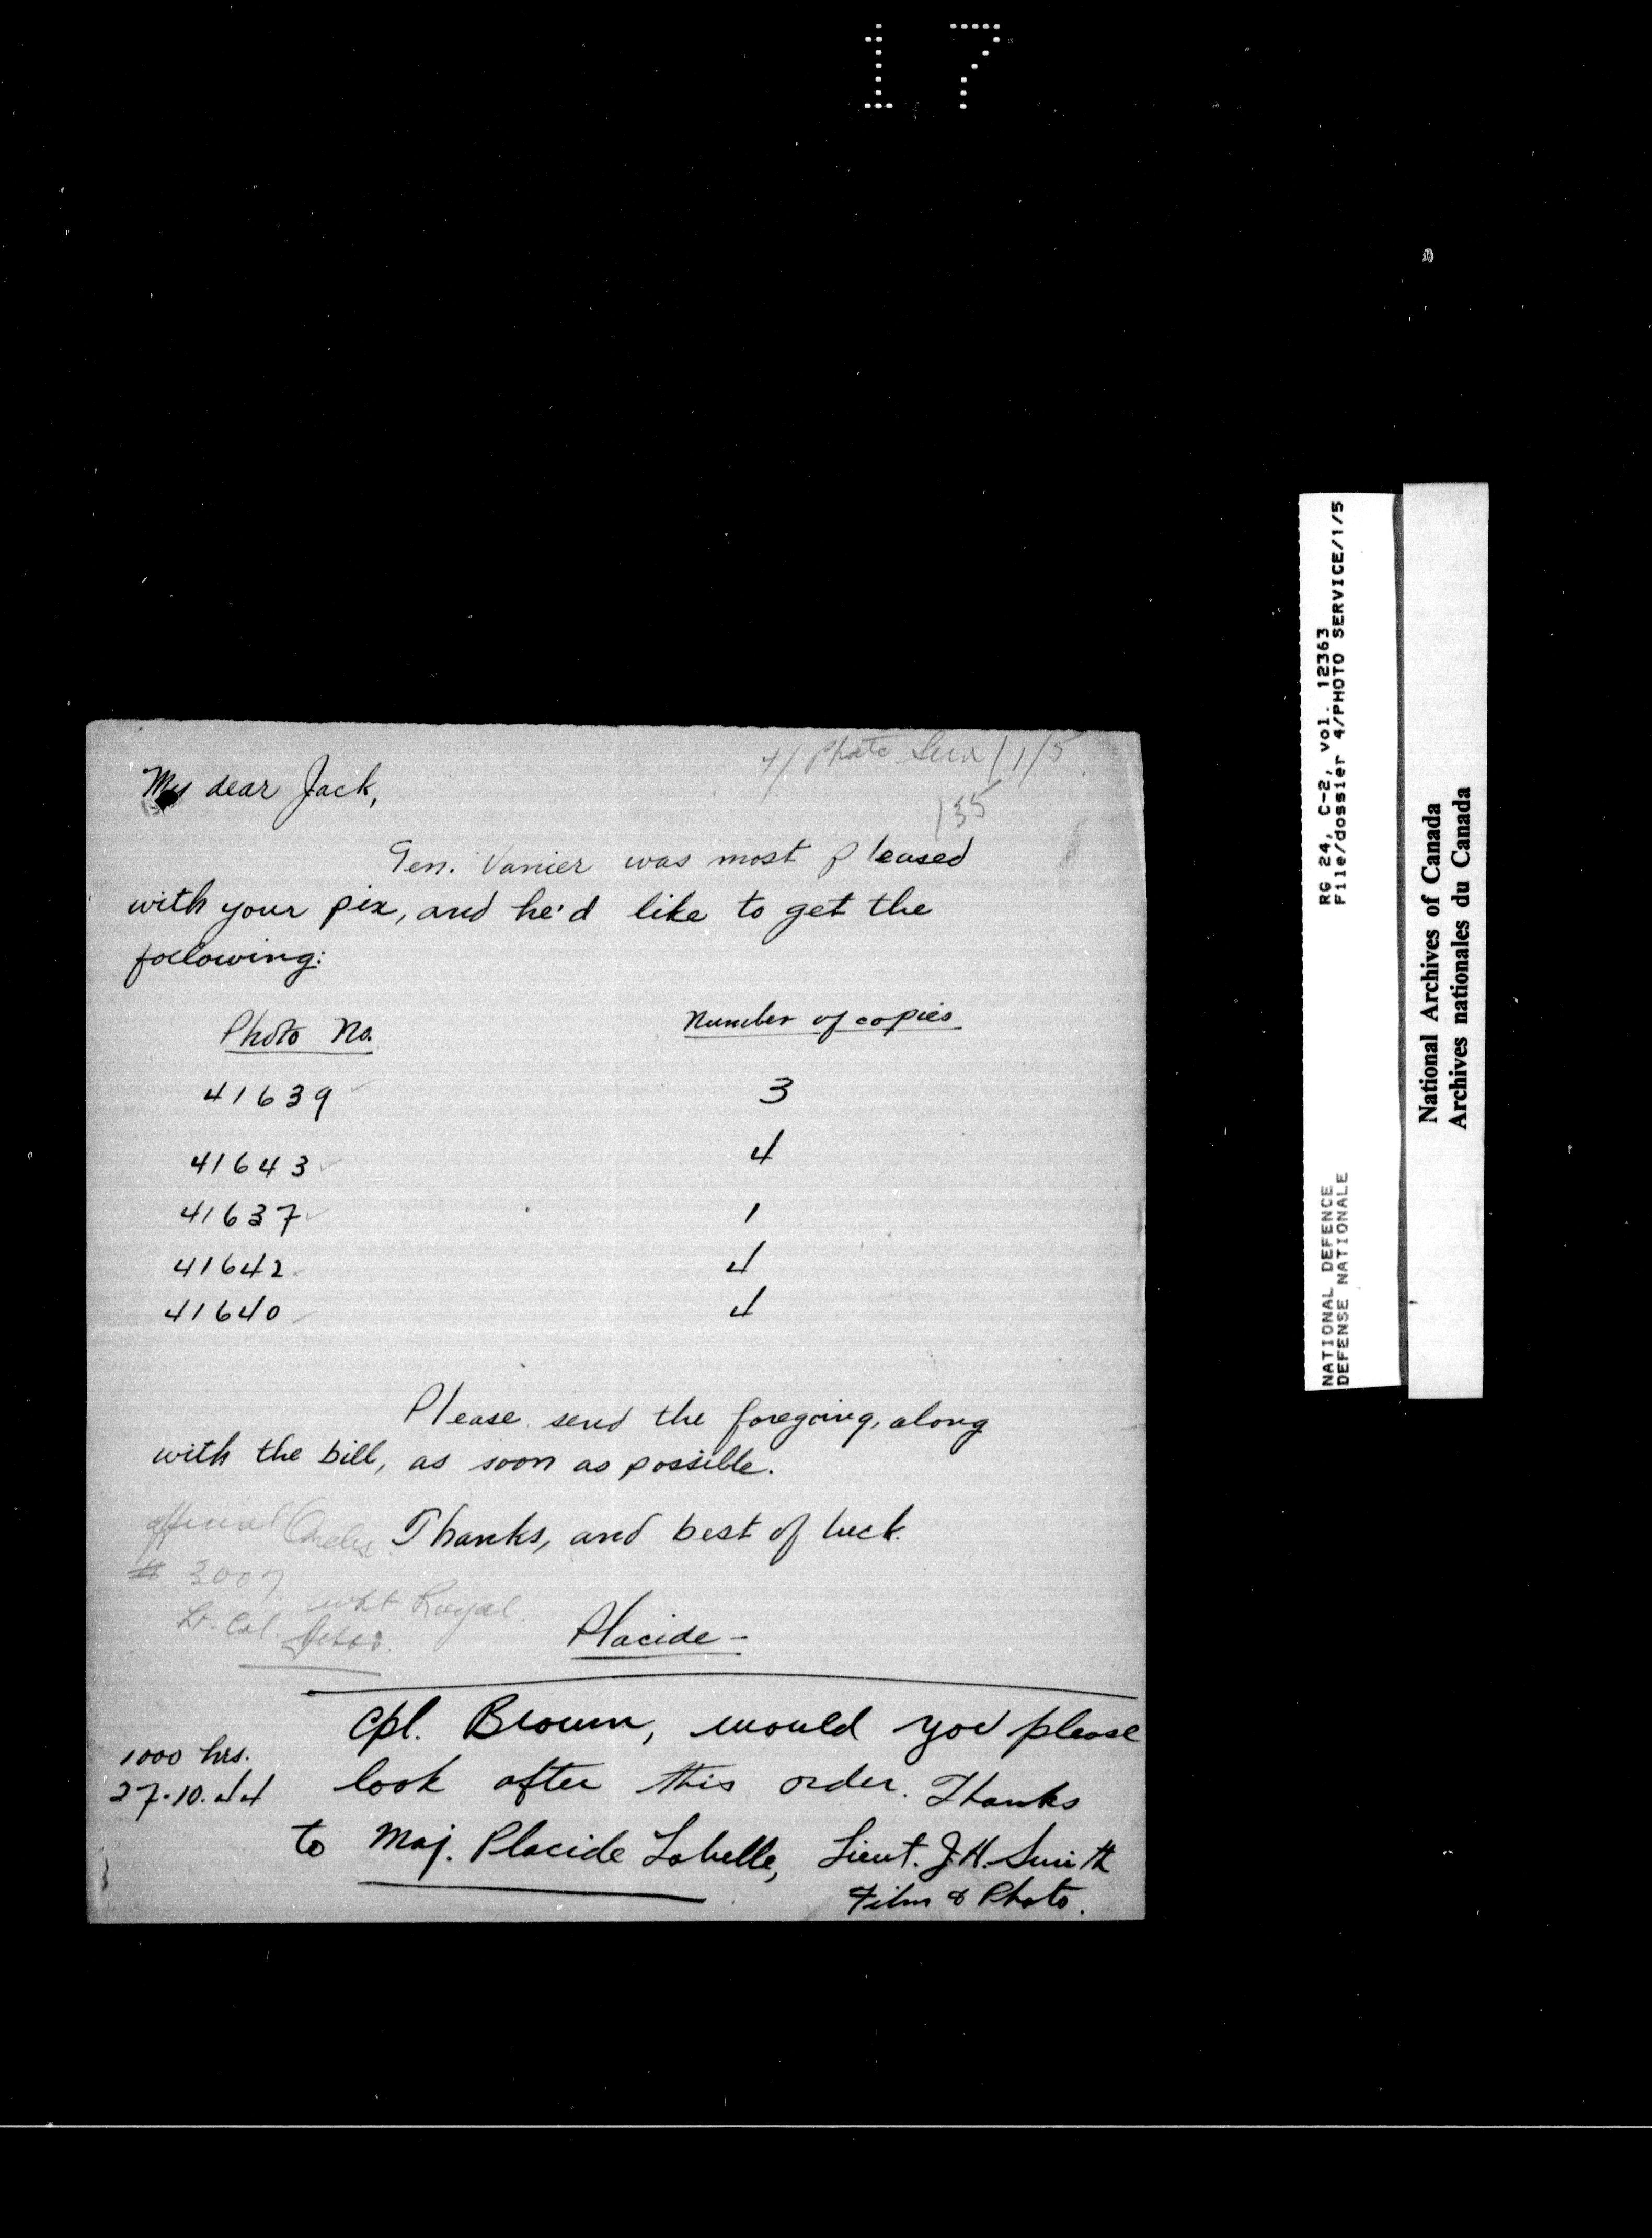 17
4/Photo Serv/1/5
135
My dear Jack,
Gen. Vanier was most pleased
with your pix, and he'd like to get the
following:
Photo No. Number of copies
41639 3
41643 4
41637 1
41642 4
41640 4
Please send the foregoing, along
with the bill, as soon as possible.
Thanks, and best of luck.
official Order
# 3007
Royal
Lt. Col.
Placide -
Cpl. Brown, would you please
look after this order. Thanks
to Maj. Placide Labelle, Lieut. J.H. Smith
Film & Photo.
1000 hrs.
27.10.44
RG 24, C-2, vol. 12363
File/dossier 4/PHOTO SERVICE/1/5
NATIONAL DEFENCE
DEFENSE NATIONALE
National Archives of Canada
Archives nationales du Canada